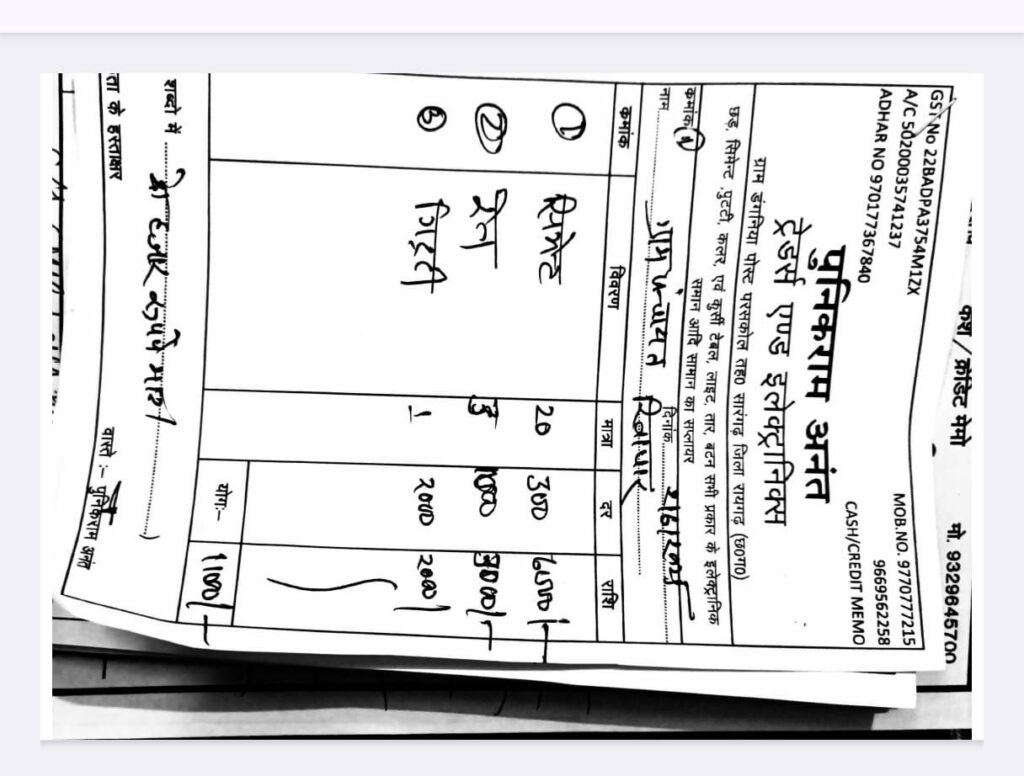 कैश / क्रेडिट मेमो
मो. 9329645700
GST No 22BADPA3754M1ZX
MOB.NO. 9770777215
A/C 50200035741237
9669562258
ADHAR NO 970177367840
CASH/CREDIT MEMO
पुनिकराम अनंत
ट्रेडर्स एण्ड इलेक्ट्रानिक्स
ग्राम डंगनिया पोस्ट परसकोल तह0 सारंगढ़ जिला रायगढ़ (छ0ग0)
छड़, सिमेन्ट ,पुटटी, कलर, एवं कुर्सी टेबल, लाइट, तार, बटन सभी प्रकार के इलेक्ट्रानिक
समान आदि सामान का सप्लायर
कमांक
दिनांक
नाम ग्राम पंचायत
कमांक विवरण मात्रा दर राशि
1 सिमेन्ट 20 300 6000/-
2 रेत 3 1000 3000/-
3 गिट्टी 1 2000 2000/
योगः- 11000/-
शब्दो में हजार रूपये मात्र
ता के हस्ताक्षर
वास्ते :- पुनिकराम अनंत